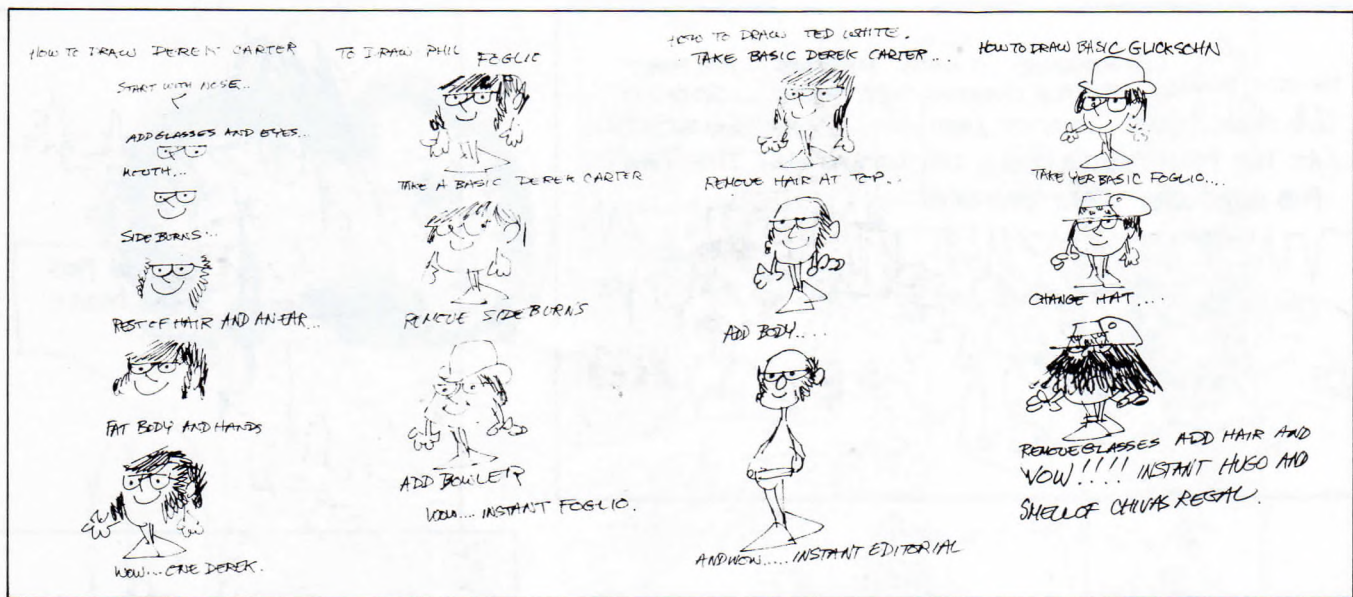 HOW TO DRAW DEREK CARTER
START WITH NOSE...
ADD GLASSES AND EYES...
MOUTH...
SIDE BURNS...
REST OF HAIR AND AN EAR...
FAT BODY AND HANDS
WOW... ONE DEREK.
TO DRAW PHIL FOGLIO
TAKE A BASIC DEREK CARTER
REMOVE SIDE BURNS
ADD BOWLER
.... INSTANT FOGLIO.
HOW TO DRAW TED WHITE.
TAKE BASIC DEREK CARTER...
REMOVE HAIR AT TOP...
ADD BODY.....
AND WOW..... INSTANT EDITORIAL
HOW TO DRAW BASIC GLICKSOHN
TAKE YER BASIC FOGLIO....
CHANGE HAT....
REMOVE GLASSES ADD HAIR AND
WOW!!!! INSTANT HUGO AND
SMELL OF CHIVAS REGAL.